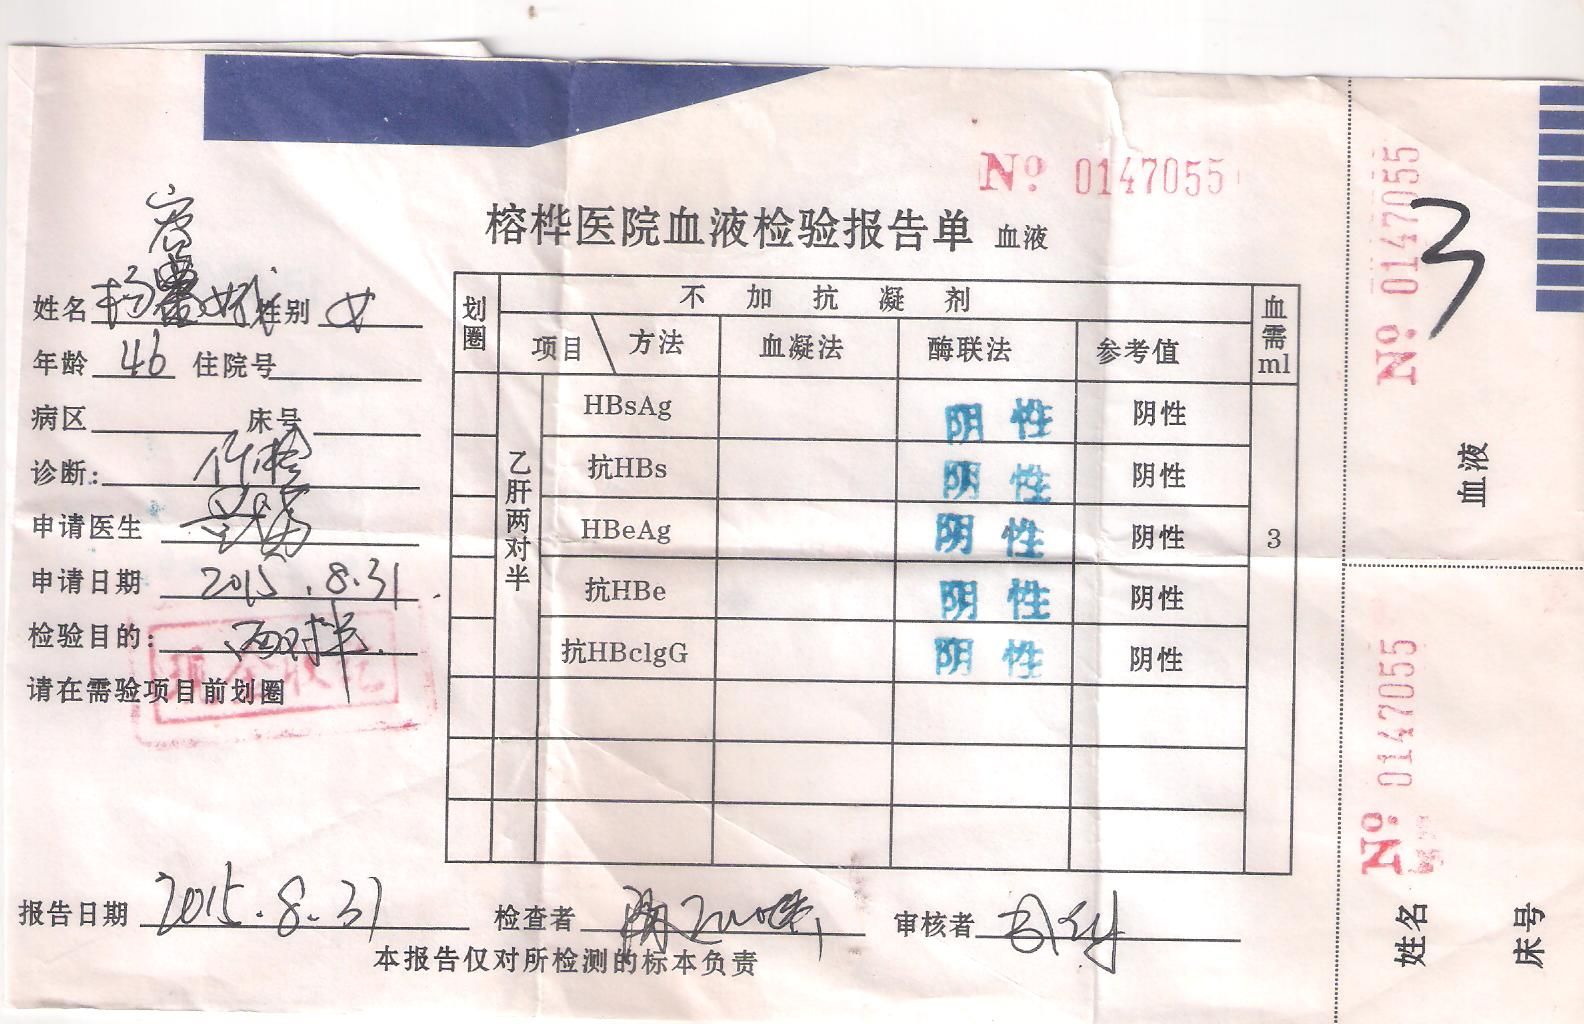 No 0147055
榕桦医院血液检验报告单 血液
姓名 杨 娥 性别 女
年龄 46 住院号
病区 床号
诊断: 体检
申请医生
申请日期 2015.8.31
检验目的: 两对半
请在需验项目前划圈
现金收讫
划圈 不加抗凝剂 血需ml
项目 方法 血凝法 酶联法 参考值
乙肝两对半
HBsAg 阴性 阴性
抗HBs 阴性 阴性
HBeAg 阴性 阴性 3
抗HBe 阴性 阴性
抗HBclgG 阴性 阴性
报告日期 2015.8.31 检查者 审核者
本报告仅对所检测的标本负责
No 0147055
3
血液
No 0147055
姓名
床号